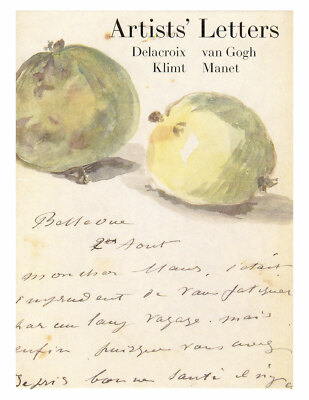 Artists' Letters
Delacroix van Gogh
Klimt Manet
Bellevue
2 Aout
mon cher Maus, c'était
imprudent de vous fatiguer
par un long voyage. mais
enfin puisque vous avez
depuis bonne santé il